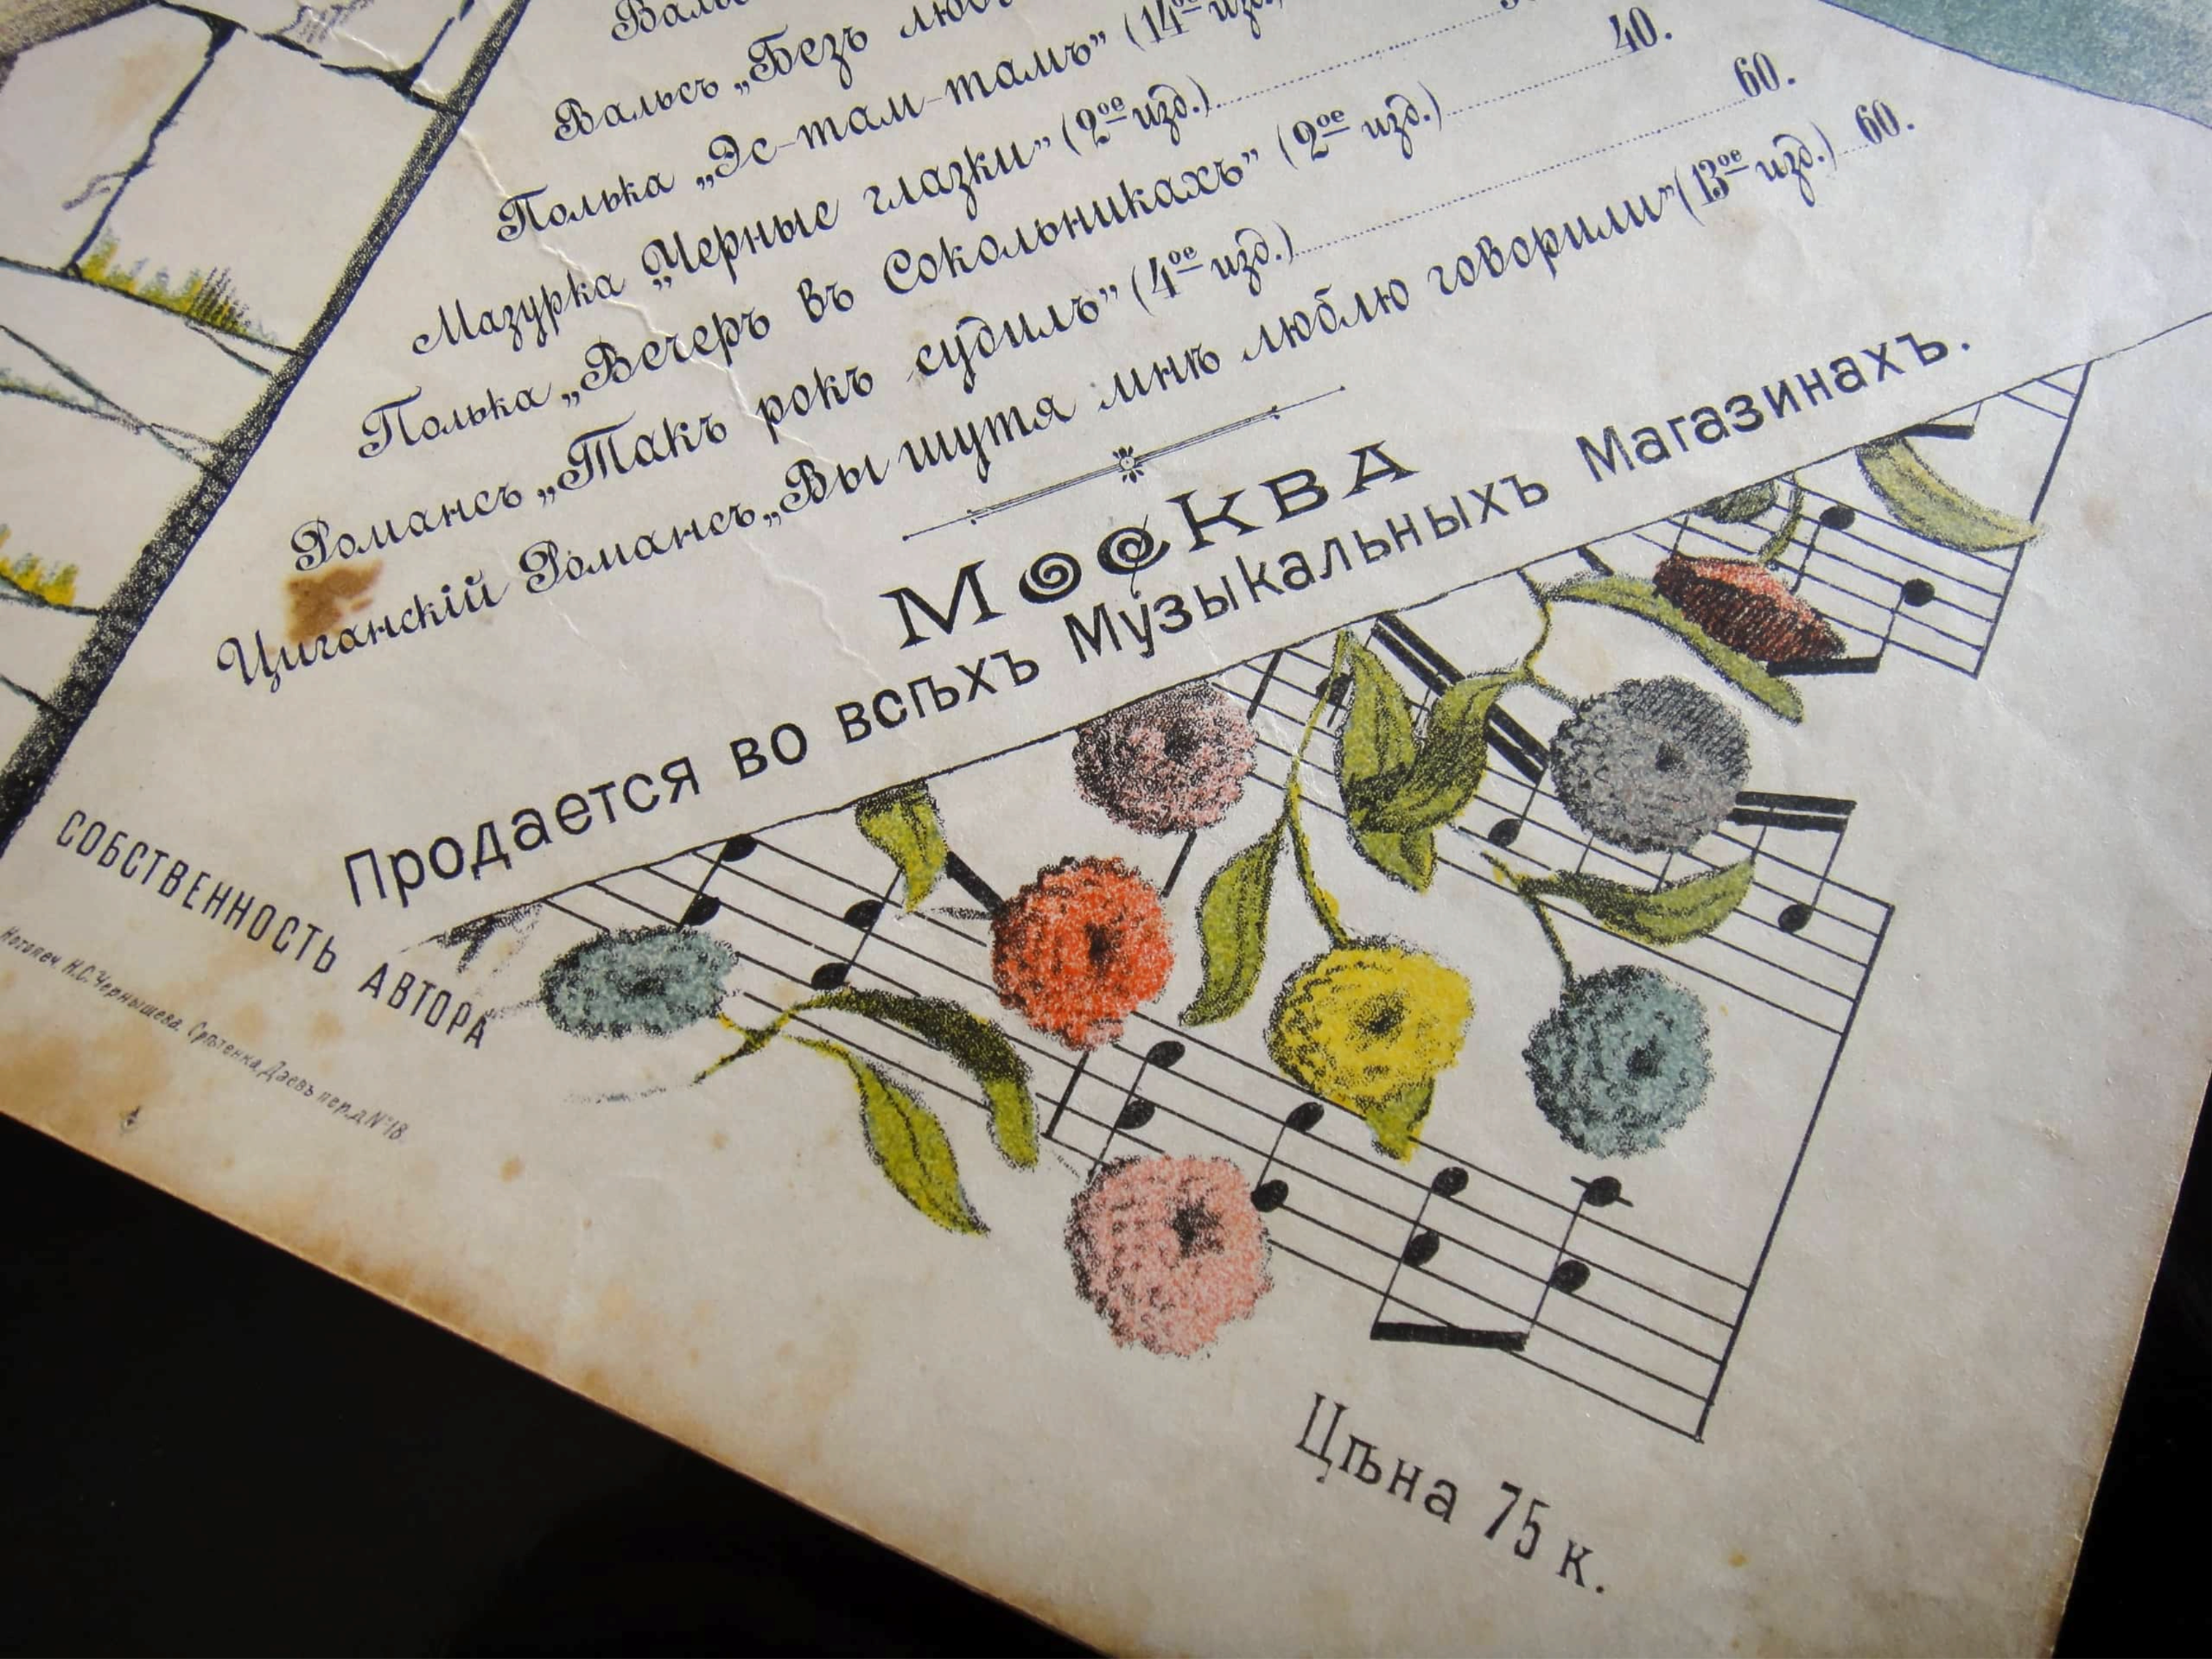 Вальсъ „Безъ
Полька „Эс-там-тамъ” (14ое изд.)
Мазурка „Черные глазки” (2ое изд.)
Полька „Вечеръ въ Сокольникахъ” (2ое изд.) 40.
Романсъ „Такъ рокъ судилъ” (4ое изд.) 60.
Циганскій Романсъ „Вы шутя мнѣ люблю говорили” (13ое изд.) 60.
МОСКВА
Продается во всѣхъ Музыкальныхъ Магазинахъ.
СОБСТВЕННОСТЬ АВТОРА
Нотопеч. Н.С.Чернышева. Срѣтенка, Даевъ пер. д. №18.
Цѣна 75 к.